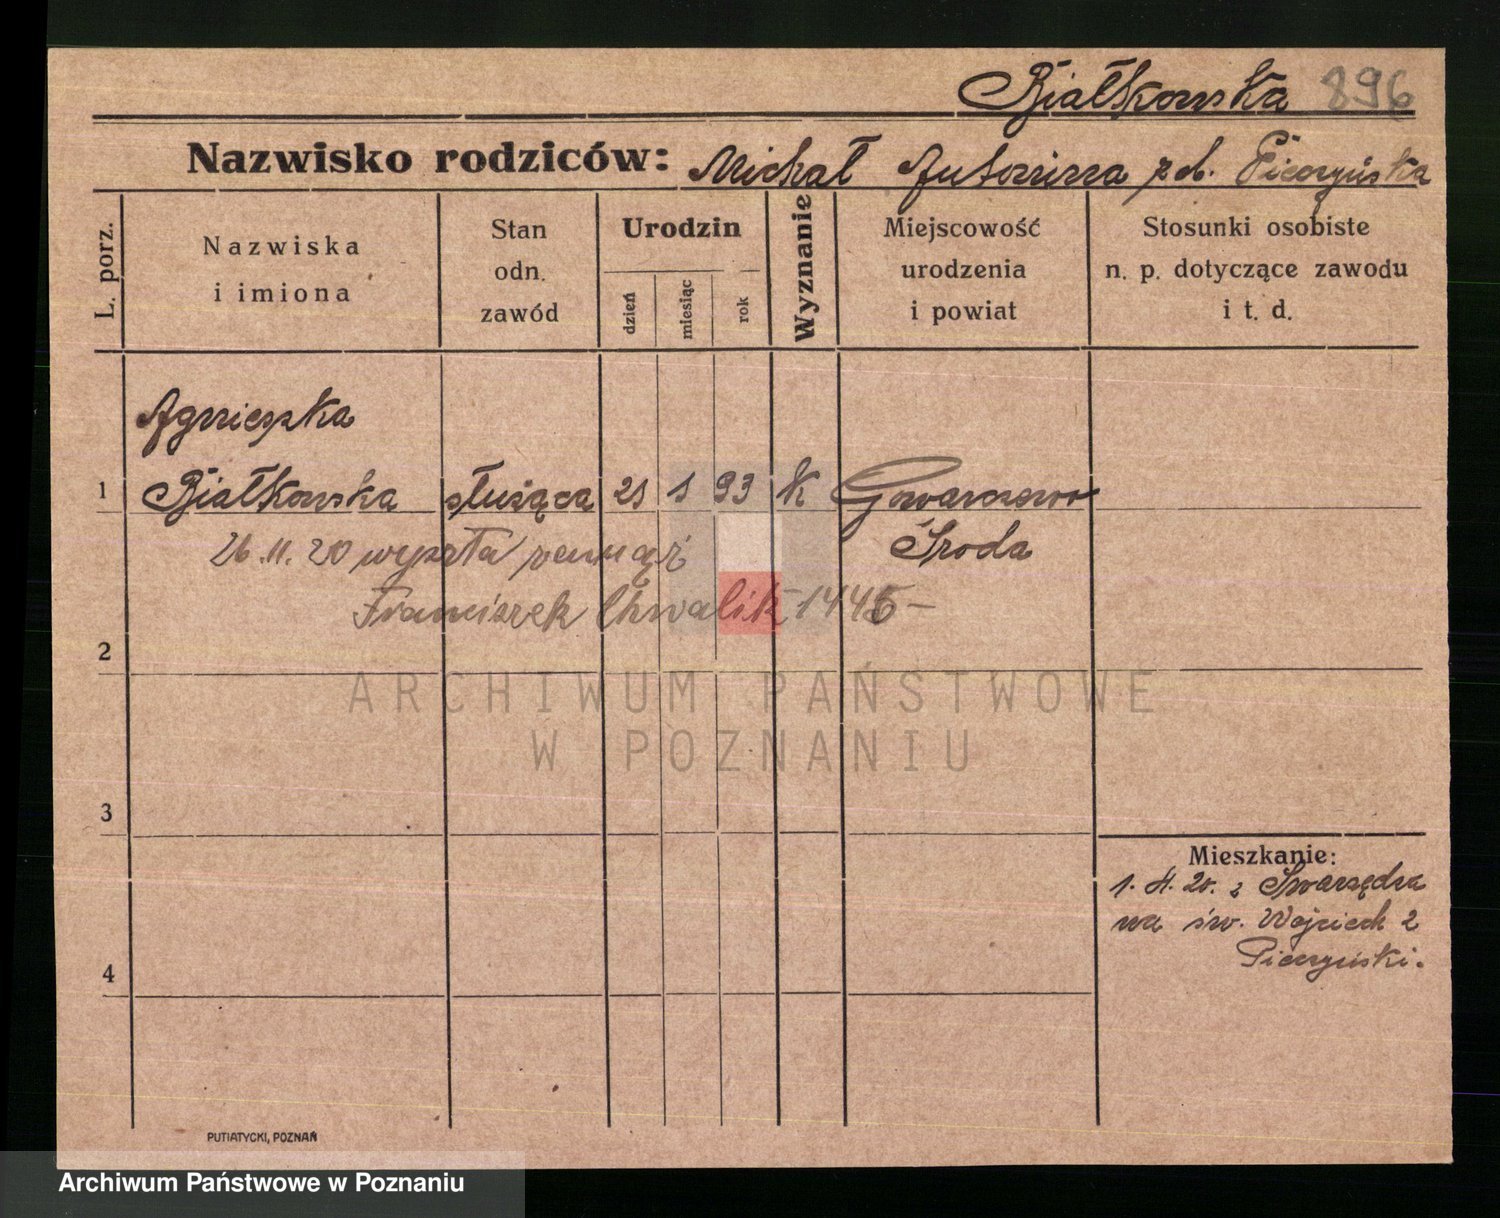 Białkowska 896
Nazwisko rodziców: Michał Antonina z d. Pieczyńska
L. porz.
Nazwiska
i imiona
Stan
odn.
zawód
Urodzin
dzień
miesiąc
rok
Wyznanie
Miejscowość
urodzenia
i powiat
Stosunki osobiste
n. p. dotyczące zawodu
i t. d.
Agnieszka
1 Białkowska służąca 21 1 93 k Gwarzewo
26.11.20 wyszła zamąż Środa
Franciszek Chwalik 1445 -
2
ARCHIWUM PAŃSTWOWE
W POZNANIU
3
Mieszkanie:
1. 4. 20. z Swarzędza
na św. Wojciech 2
Pieczyński.
4
PUTIATYCKI, POZNAŃ
Archiwum Państwowe w Poznaniu